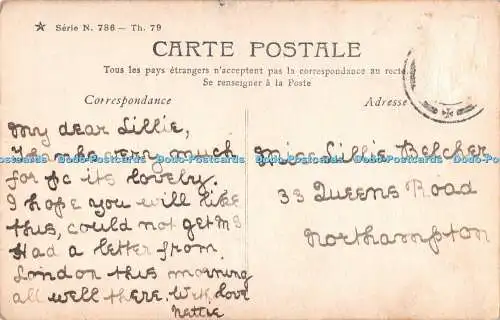 ★ Série N. 786 — Th. 79
CARTE POSTALE
Tous les pays étrangers n'acceptent pas la correspondance au recto
Se renseigner à la Poste
Correspondance
Adresse
My dear Lillie,
Thanks very much
for pc its lovely.
I hope you will like
this, could not get MS
Had a letter from
London this morning
all well there. With love
Nettie
Miss Lillie Belcher
33 Queens Road
Northampton
Dodo-Postcards Dodo-Postcards Dodo-Postcards Dodo-Postcards Dodo-Postcards